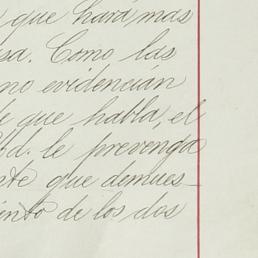 que hará mas
sa. Como las
no evidencian
e que habla, el
bd. le prevenga
nte que demues_
ento de los dos